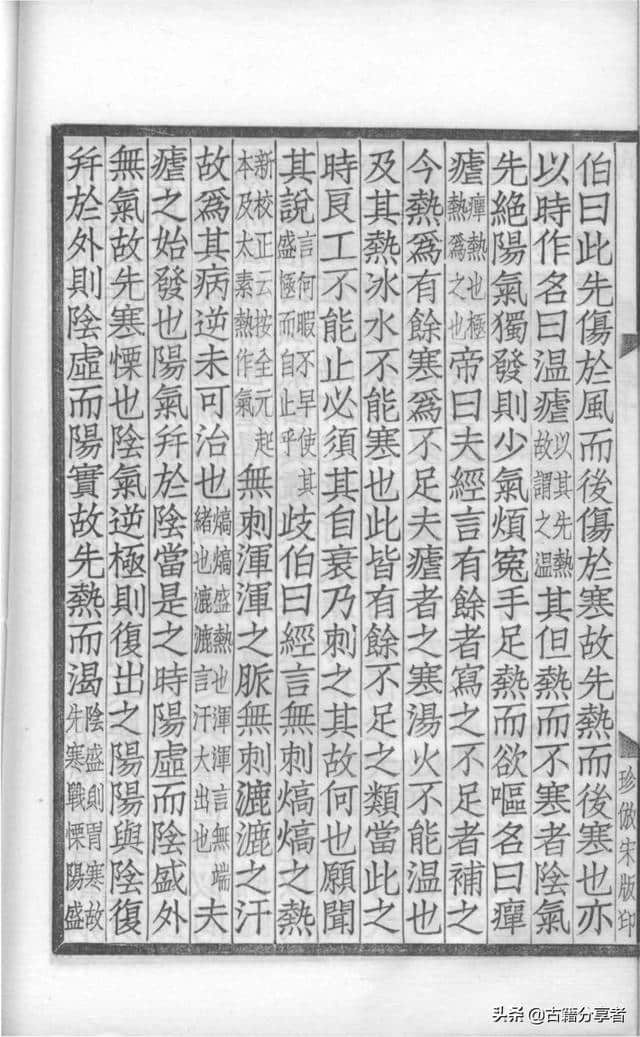 伯曰此先傷於風而後傷於寒故先熱而後寒也亦
以時作名曰温瘧以其先熱故謂之温其但熱而不寒者陰氣
先絶陽氣獨發則少氣煩冤手足熱而欲嘔名曰癉
瘧癉熱也極熱爲之也帝曰夫經言有餘者寫之不足者補之
今熱爲有餘寒爲不足夫瘧者之寒湯火不能温也
及其熱冰水不能寒也此皆有餘不足之類當此之
時良工不能止必須其自衰乃刺之其故何也願聞
其說言何暇不早使其盛極而自止乎歧伯曰經言無刺熇熇之熱
新校正云按全元起本及太素熱作氣無刺渾渾之脈無刺漉漉之汗
故爲其病逆未可治也熇熇盛熱也渾渾言無端緒也漉漉言汗大出也夫
瘧之始發也陽氣幷於陰當是之時陽虛而陰盛外
無氣故先寒慄也陰氣逆極則復出之陽陽與陰復
幷於外則陰虛而陽實故先熱而渴陰盛則胃寒故先寒戰慄陽盛
珍倣宋版印
头条@古籍分享者